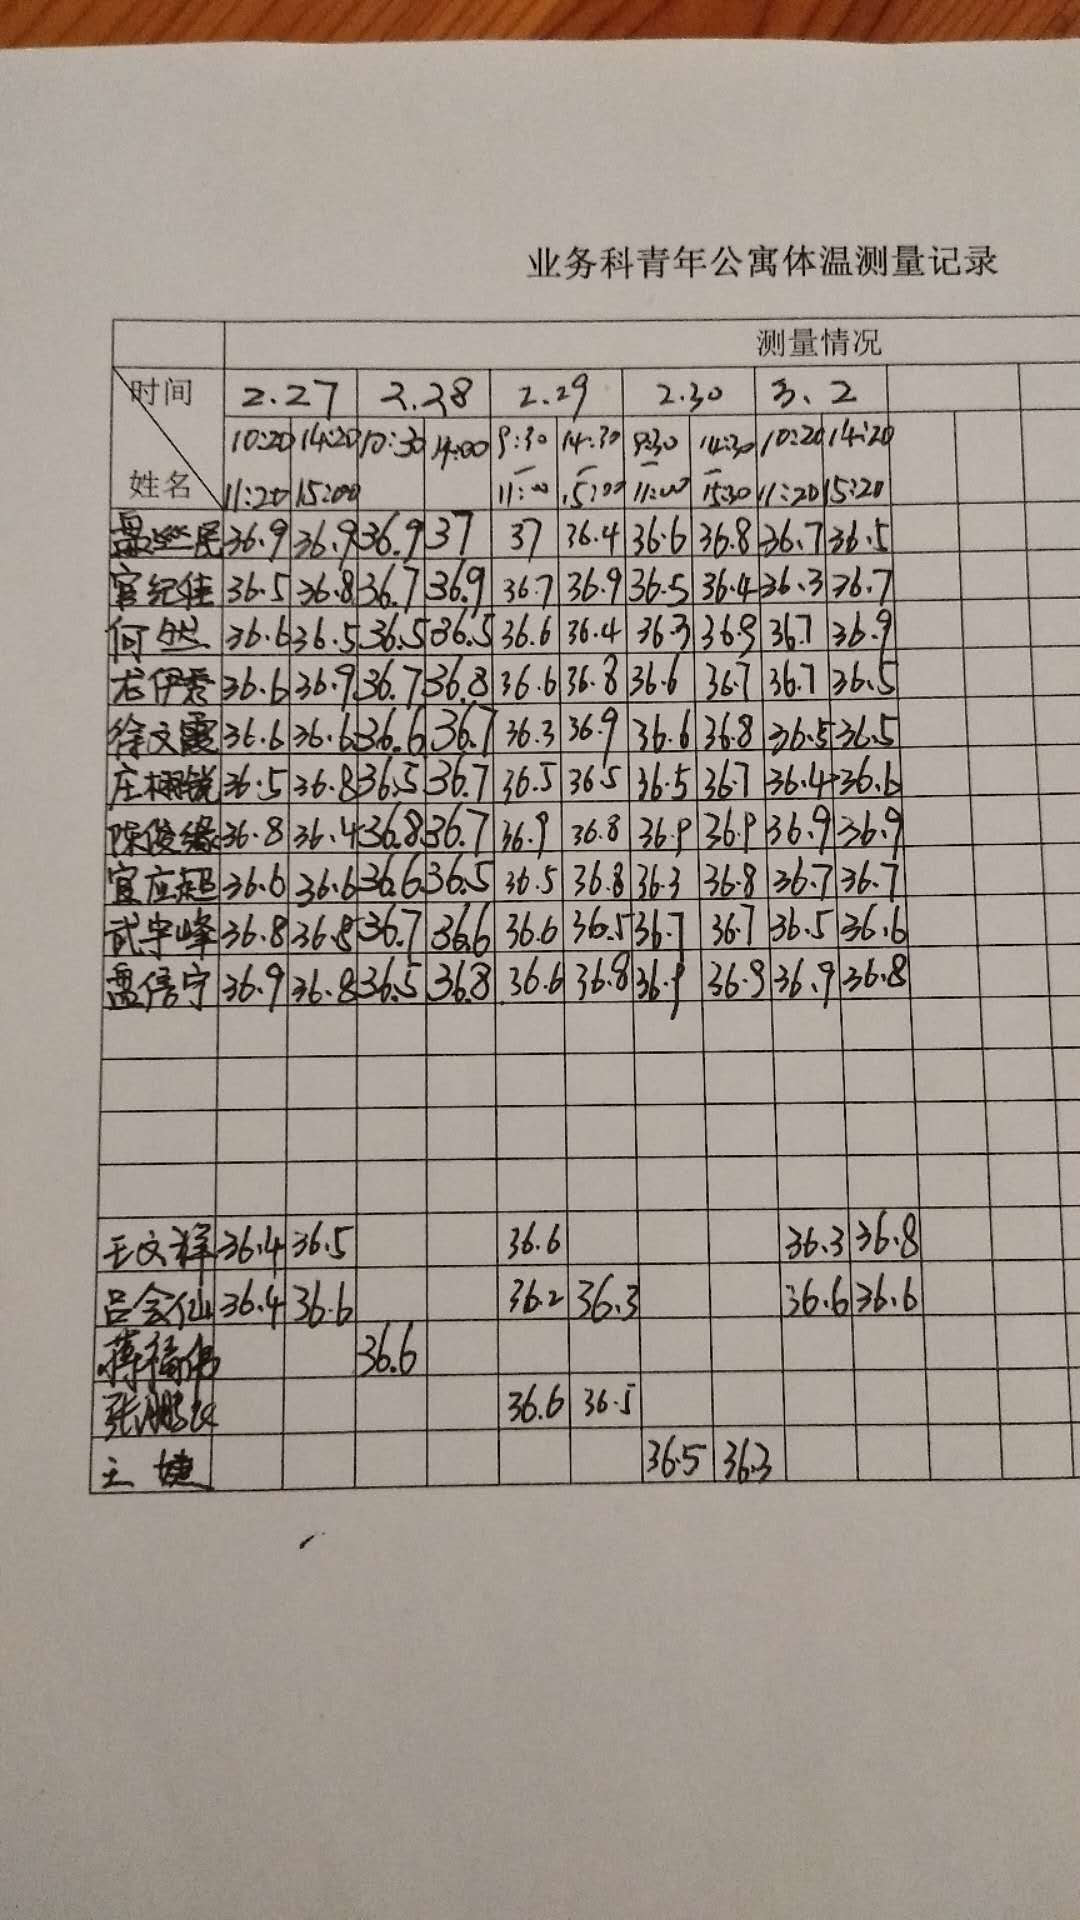 业务科青年公寓体温测量记录
测量情况
时间 2.27 2.28 2.29 2.30 3.2
10:20 14:20 10:30 14:00 9:30 14:30 9:30 14:30 10:20 14:20
姓名 11:20 15:00 11:00 15:00 11:00 15:30 11:20 15:20
36.9 36.9 36.9 37 37 36.4 36.6 36.8 36.7 36.5
官纪佳 36.5 36.8 36.7 36.9 36.7 36.9 36.5 36.4 36.3 36.7
何 36.6 36.5 36.5 36.5 36.6 36.4 36.3 36.9 36.7 36.9
龙伊秀 36.6 36.9 36.7 36.8 36.6 36.8 36.6 36.7 36.7 36.5
徐文霞 36.6 36.6 36.6 36.7 36.3 36.9 36.6 36.8 36.5 36.5
庄 锐 36.5 36.8 36.5 36.7 36.5 36.5 36.5 36.7 36.4 36.6
陈俊缘 36.8 36.4 36.8 36.7 36.9 36.8 36.9 36.9 36.9 36.9
官应超 36.6 36.6 36.6 36.5 36.5 36.8 36.3 36.8 36.7 36.7
武宇峰 36.8 36.8 36.7 36.6 36.6 36.5 36.7 36.7 36.5 36.6
盘倍宁 36.9 36.8 36.5 36.8 36.6 36.8 36.9 36.9 36.9 36.8
王文祥 36.4 36.5 36.6 36.3 36.8
吕会仙 36.4 36.6 36.2 36.3 36.6 36.6
蒋福伟 36.6
张鹏 36.6 36.5
王婕 36.5 36.3